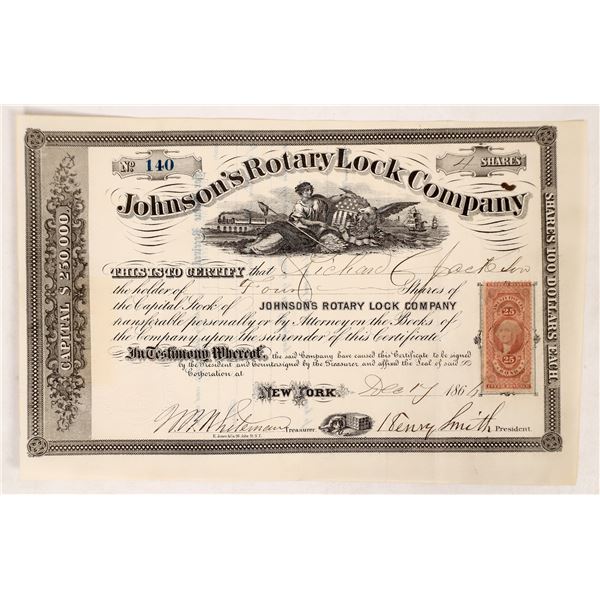 No. 140
4 SHARES
Johnson's Rotary Lock Company
CAPITAL $ 250,000
SHARES 100 DOLLARS EACH.
THIS IS TO CERTIFY that Richard C Jackson
the holder of Four Shares of
the Capital Stock of JOHNSON'S ROTARY LOCK COMPANY
transferable personally or by Attorney on the Books of
the Company upon the surrender of this Certificate.
In Testimony Whereof, the said Company have caused this Certificate to be signed
by the President and Countersigned by the Treasurer and affixed the Seal of said
Corporation at
NEW YORK. Dec 17 186
25
25
Treasurer.
Henry Smith President.